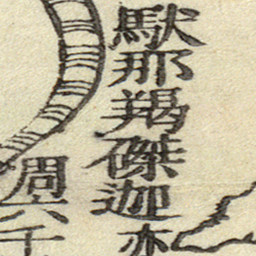 馱那羯磔迦亦
周六千